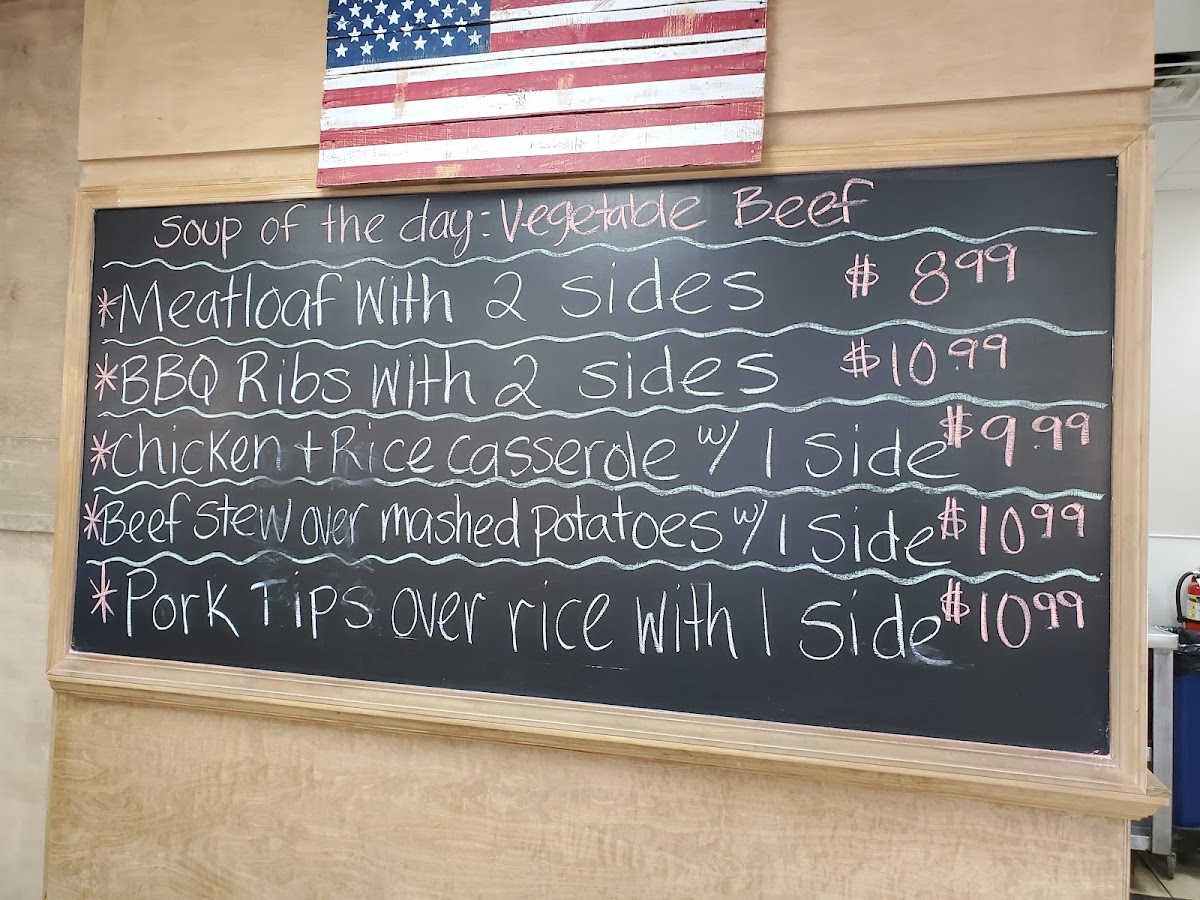 Soup of the day: Vegetable Beef
*Meatloaf with 2 sides $ 8.99
*BBQ Ribs with 2 sides $10.99
*Chicken + Rice casserole w/ 1 Side $9.99
*Beef Stew over mashed potatoes w/ 1 Side $10.99
*Pork Tips over rice with 1 Side $10.99